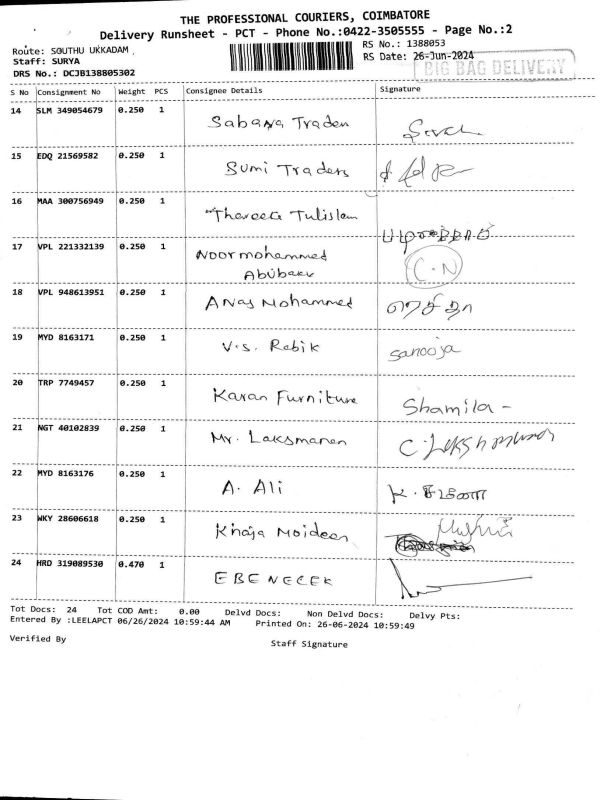 THE PROFESSIONAL COURIERS, COIMBATORE
Delivery Runsheet - PCT - Phone No.:0422-3505555 - Page No.:2
Route: SOUTHU UKKADAM,
RS No.: 1388053
Staff: SURYA
RS Date: 26-Jun-2024
DRS No.: DCJB138805302
BIG BAG DELIVERY
S No Consignment No Weight PCS Consignee Details Signature
14 SLM 349054679 0.250 1 Sabana Traden
15 EDQ 21569582 0.250 1 Sumi Traders
16 MAA 300756949 0.250 1 Thareeta Tulislam
17 VPL 221332139 0.250 1 Noormohammed C.N
Abubakr
18 VPL 948613951 0.250 1 Anas Mohammed
19 MYD 8163171 0.250 1 V.S. Rabik sanooja
20 TRP 7749457 0.250 1 Karan Furniture Shamila -
21 NGT 40102839 0.250 1 Mr. Laksmanan
22 MYD 8163176 0.250 1 A. Ali
23 WKY 28606618 0.250 1 Khaja Moideen
24 HRD 319089530 0.470 1 EBENECER
Tot Docs: 24 Tot COD Amt: 0.00 Delvd Docs: Non Delvd Docs: Delvy Pts:
Entered By :LEELAPCT 06/26/2024 10:59:44 AM Printed On: 26-06-2024 10:59:49
Verified By Staff Signature